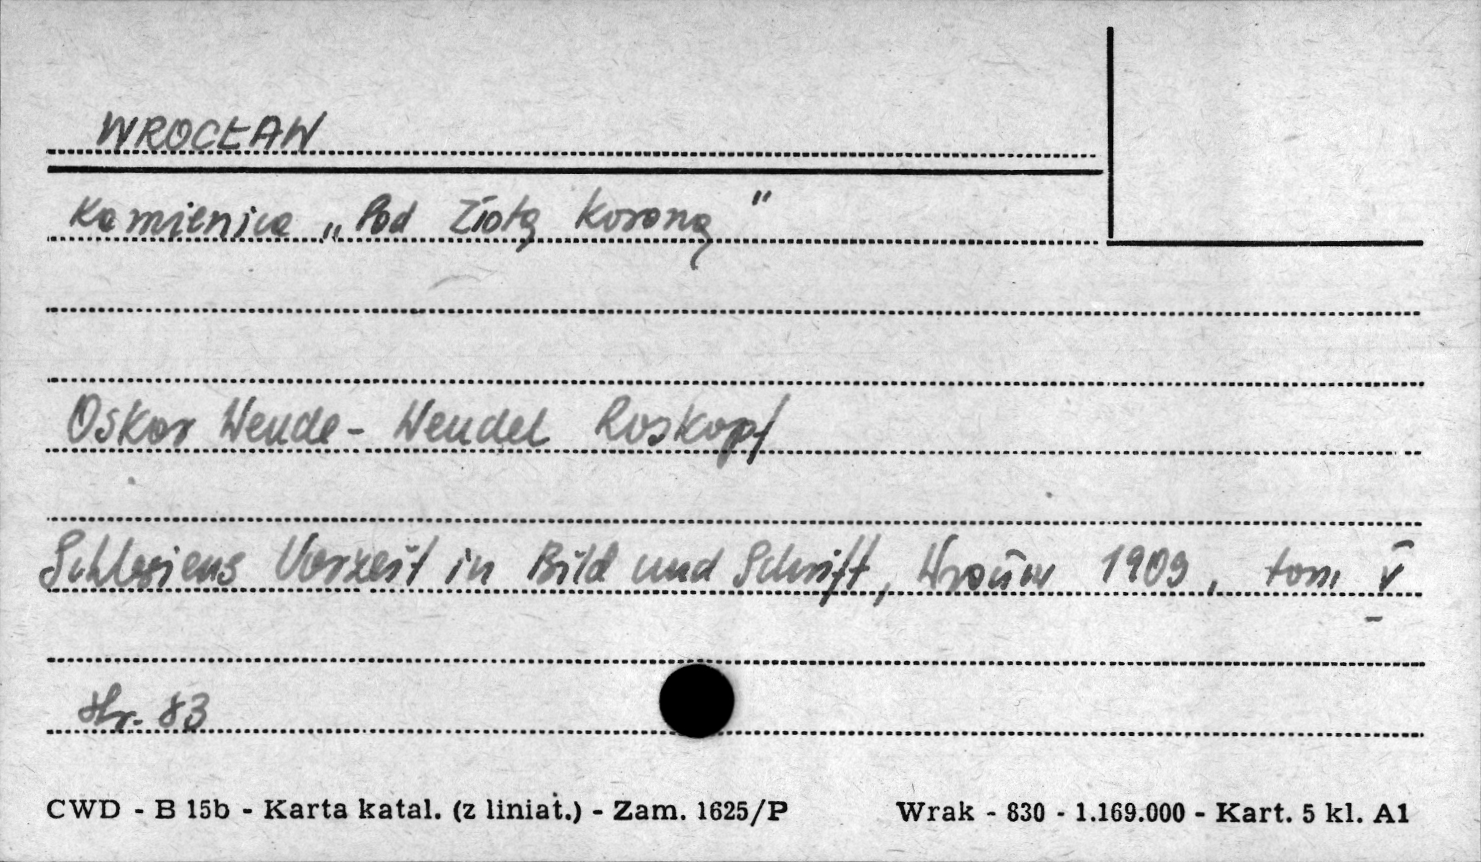 WROCŁAW
Kamienica „Pod Złotą Koroną”
Oskar Wende - Wendel Roskopf
Schlesiens Vorzeit in Bild und Schrift, 1909, tom V
str. 83
CWD - B 15b - Karta katal. (z liniat.) - Zam. 1625/P
Wrak - 830 - 1.169.000 - Kart. 5 kl. A1